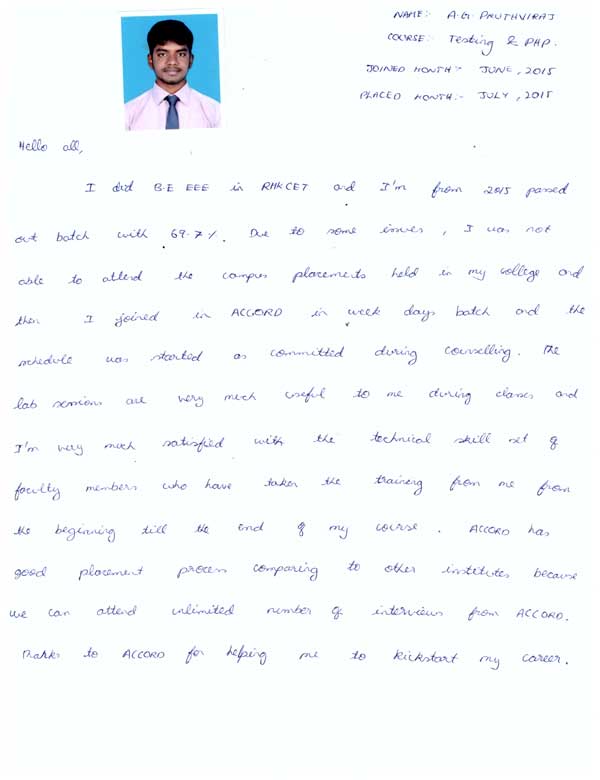 NAME:- A.G. PRUTHVIRAJ
COURSE:- Testing & PHP.
JOINED MONTH:- JUNE, 2015
PLACED MONTH:- JULY, 2015
Hello all,
I did B.E EEE in RMKCET and I'm from 2015 passed
out batch with 69.7%. Due to some issues, I was not
able to attend the campus placements held in my college and
then I joined in ACCORD in week days batch and the
schedule was started as committed during counselling. The
lab sessions are very much useful to me during classes and
I'm very much satisfied with the technical skill set of
faculty members who have taken the training from me from
the beginning till the end of my course. ACCORD has
good placement process comparing to other institutes because
we can attend unlimited number of interviews from ACCORD.
Thanks to ACCORD for helping me to kickstart my career.